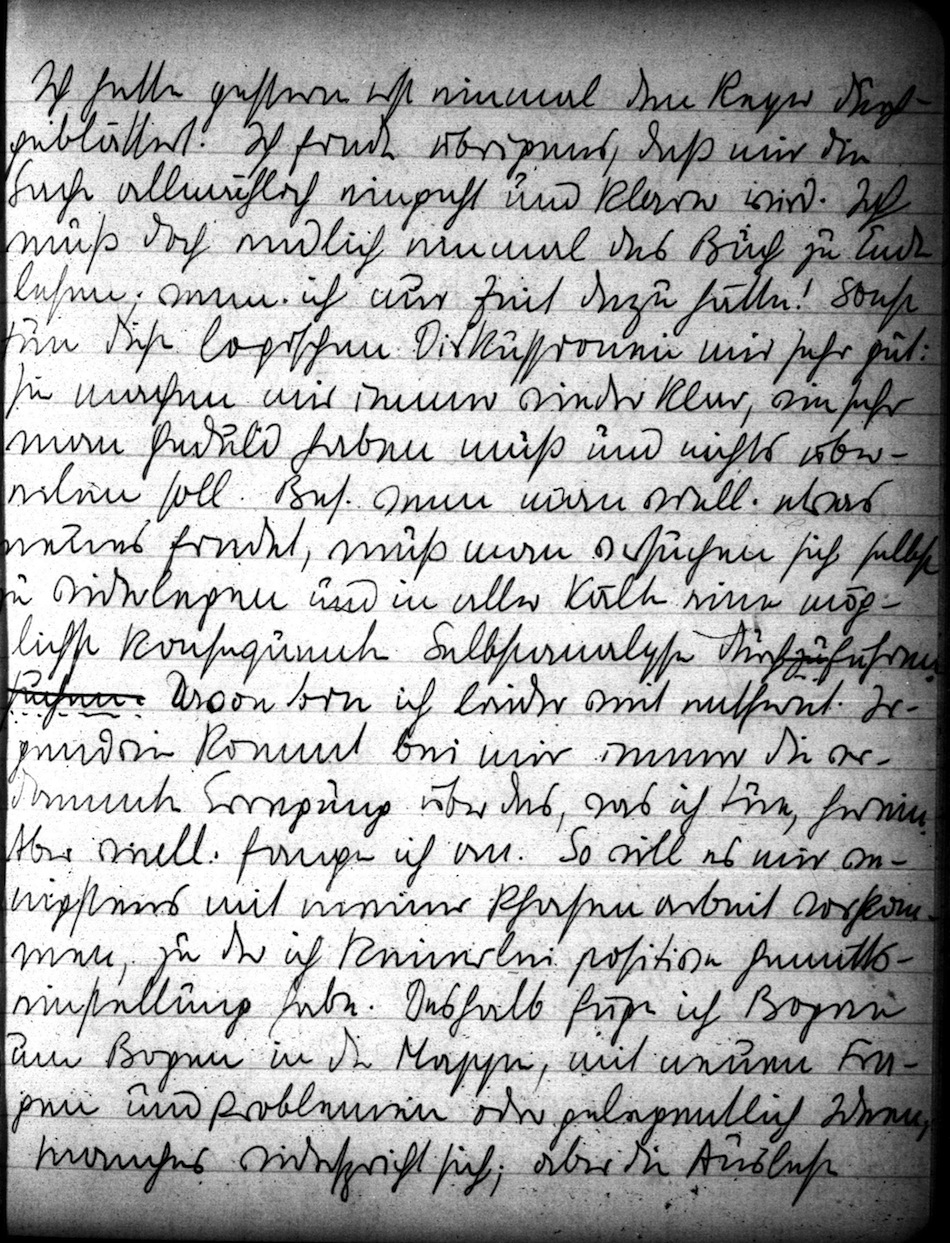 Ich hatte gestern erst einmal den Keyser durch-
geblättert. Ich finde übrigens, daß mir die
Sache allmählich eingeht und klarer wird. Ich
muß doch endlich einmal das Buch zu Ende
lesen; wenn ich nur Zeit dazu hätte! Sonst
tun diese logischen Diskussionen mir sehr gut:
sie machen mir immer wieder klar, wie sehr
man Geduld haben muß und nichts über-
eilen soll. Bes. wenn man viell. etwas
neues findet, muß man versuchen sich selbst
zu widerlegen und in aller Kälte eine mög-
lichst konsequente Selbstanalyse durchzuführen.
Davon bin ich leider weit entfernt. Ir-
gendwie kommt bei mir immer die ver-
dammte Erregung über das, was ich tue, herein.
Aber viell. fange ich an. So will es mir we-
nigstens mit meiner Phasenarbeit vorkom-
men, zu der ich keinerlei positive Gemüts-
einstellung habe. Deshalb füge ich Bogen
um Bogen in die Mappe, mit neuen Fra-
gen und Problemen oder gelegentlich Ideen,
manches widerspricht sich; aber die Auslese